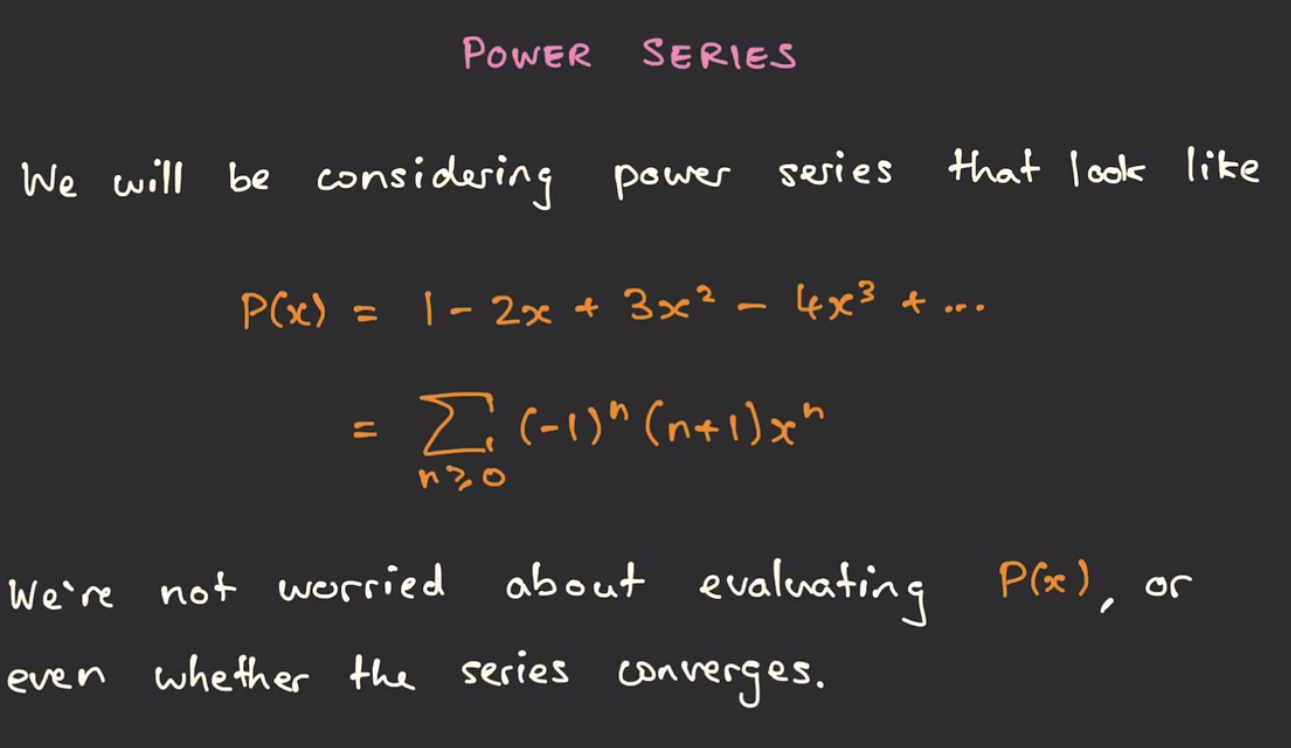 POWER SERIES
We will be considering power series that look like
P(x) = 1 - 2x + 3x² - 4x³ + ...
= ∑ (-1)ⁿ (n+1)xⁿ
n⩾0
We're not worried about evaluating P(x), or
even whether the series converges.